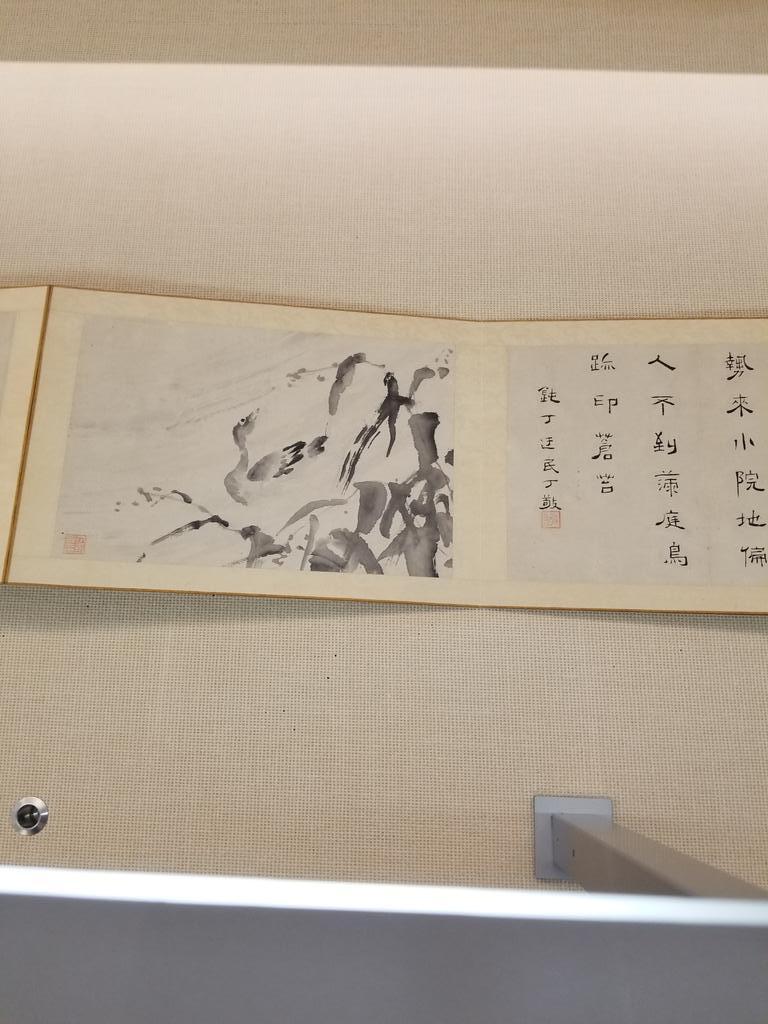 勢來小院地偏
人不到滿庭鳥
跡印蒼苔
鈍丁迂民丁敬